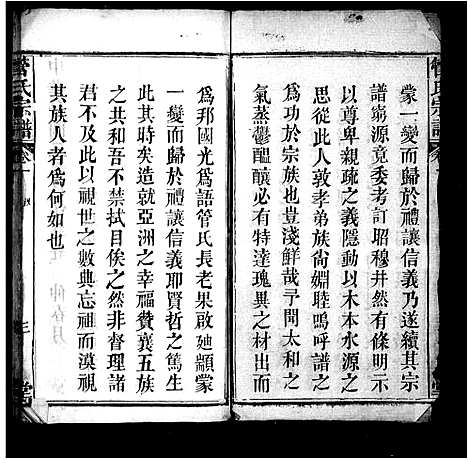 蒙一變而歸於禮讓信義乃遂續其宗
譜窮源竟委考訂昭穆井然有條明示
以尊卑親疏之義隱動以木本水源之
思從此人敦孝弟族尙婣睦嗚呼譜之
爲功於宗族也豈淺鮮哉寻間太和之
氣蒸鬱醞釀必有特達瑰異之材出而
爲邦國光爲語管氏長老果啟廸顓蒙
一變而歸於禮讓信義耶賢哲之篤生
此其時矣造就亞洲之幸福贊襄五族
之共和吾不禁拭目俟之然非督理諸
君不及此以視世之數典忘祖而漠視
其族人者爲何如也
管氏宗譜
卷一
三